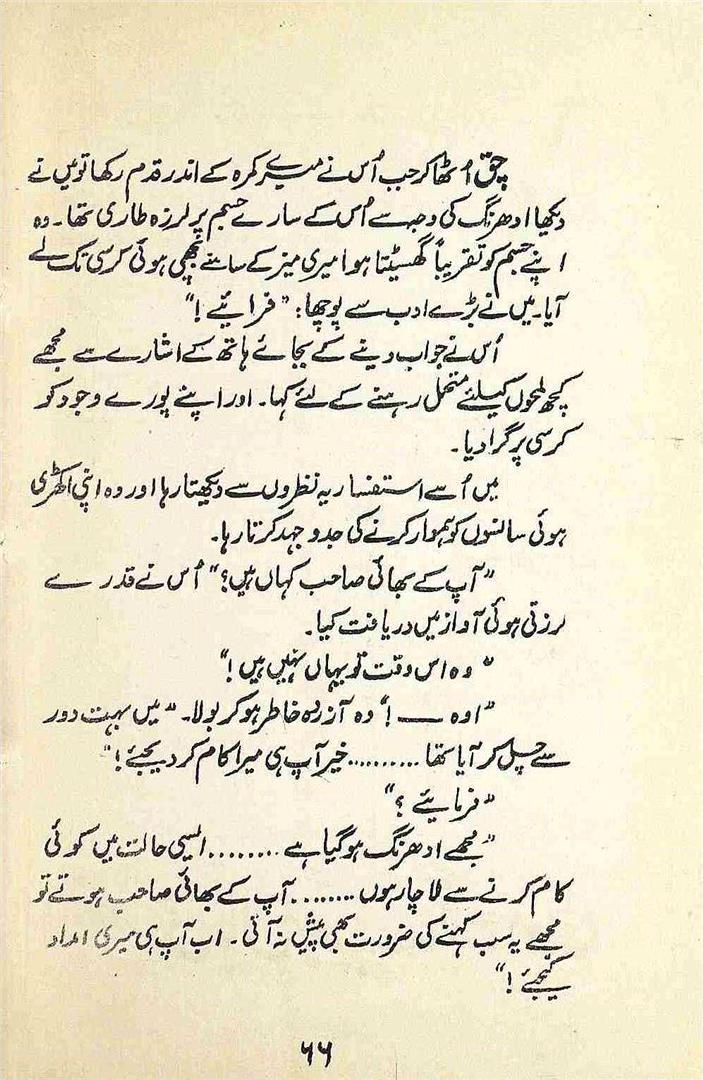 چق اُٹھا کر جب اُس نے میرے کمرہ کے اندر قدم رکھا تو میں نے
دیکھا ادھرنگ کی وجہ سے اُس کے سارے جسم پر لرزہ طاری تھا۔ وہ
اپنے جسم کو تقریباً گھسیٹتا ہوا میری میز کے سامنے بچھی ہوئی کرسی تک لے
آیا۔ میں نے بڑے ادب سے پوچھا: "فرائیے!"
اُس نے جواب دینے کے بجائے ہاتھ کے اشارے سے مجھے
کچھ لمحوں کیلئے متحمل رہنے کے لئے کہا۔ اور اپنے پورے وجود کو
کرسی پر گرا دیا۔
میں اُسے استفساریہ نظروں سے دیکھتا رہا اور وہ اپنی اکھڑی
ہوئی سانسوں کو ہموار کرنے کی جدوجہد کرتا رہا۔
"آپ کے بھائی صاحب کہاں ہیں؟" اُس نے قدرے
لرزتی ہوئی آواز میں دریافت کیا۔
"وہ اس وقت تو یہاں نہیں ہیں!"
"اوہ ــــ !" وہ آزردہ خاطر ہو کر بولا۔ "میں بہت دور
سے چل کر آیا تھا .......... خیر آپ ہی میرا کام کر دیجئے!"
"فرمایئے ؟"
"مجھے ادھرنگ ہو گیا ہے ........ ایسی حالت میں کوئی
کام کرنے سے لاچار ہوں ........ آپ کے بھائی صاحب ہوتے تو
مجھے یہ سب کہنے کی ضرورت بھی پیش نہ آتی۔ اب آپ ہی میری امداد
کیجئے!"
۶۶